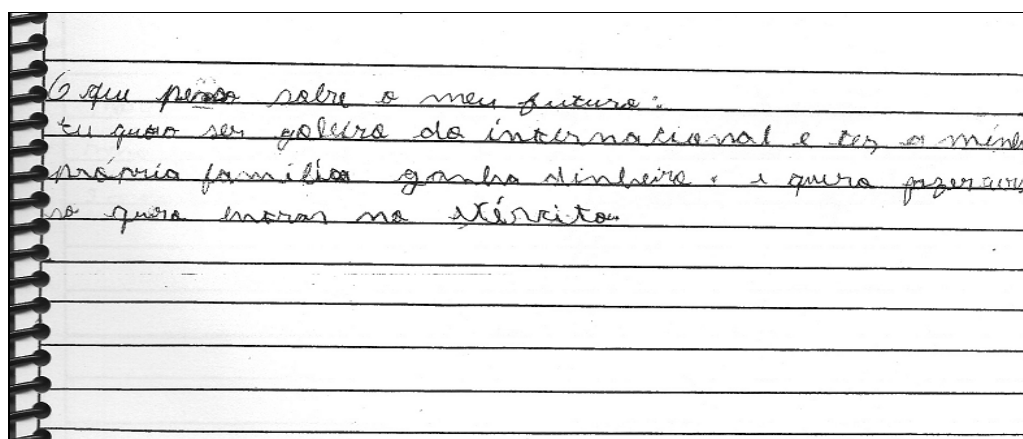 O que penso sobre o meu futuro:
Eu quero ser goleiro do internacional e ter a minh
própria família ganha dinheiro. e quero
quero morar no